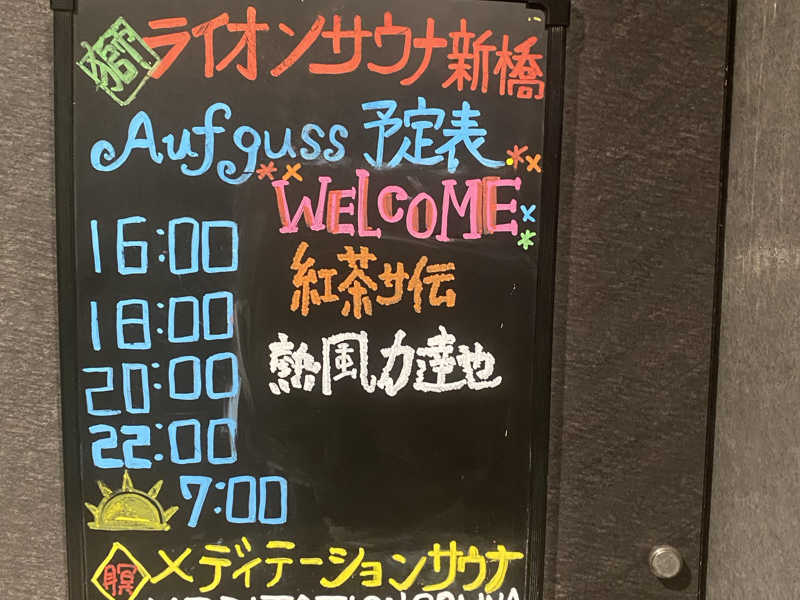 獅 ライオンサウナ新橋
Aufguss 予定表
WELCOME
16:00
紅茶サ伝
18:00
熱風力達也
20:00
22:00
7:00
瞑 メディテーションサウナ